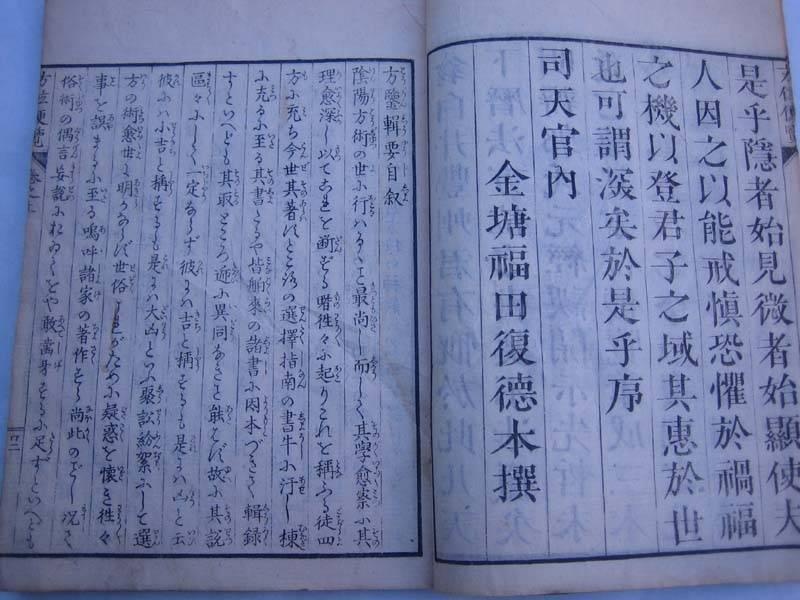 是乎隱者始見微者始顯使夫
人因之以能戒愼恐懼於禍福
之機以登君子之域其惠於世
也可謂深矣於是乎序
司天官內
金塘福田復德本撰
方鑒輯要自叙
陰陽方術の世に行はるゝこと最尚し而して其學愈繁に其
理愈深し以てこれを断ずる 徃々に起りこれを稱ふる徒四
方に充ち今世其著はすところの選擇指南の書牛に汗し棟
に充るに至る其書たるや皆舶來の諸書に因本づきて輯錄
すといへども其取ところ 異同なきこと能はず故に其說
區々として一定ならず彼には吉と稱するも是には凶と云
彼には小吉と稱するも是には大凶といふ聚訟紛絮にして選
方の術愈世に明かならず世俗これがために疑惑を懷き徃々
事を誤まるに至る嗚呼諸家の著作すら尚此のごとし况や
俗術の偶言妄說においてをや敢 身するに足ずといへども
方位便覽 卷之上